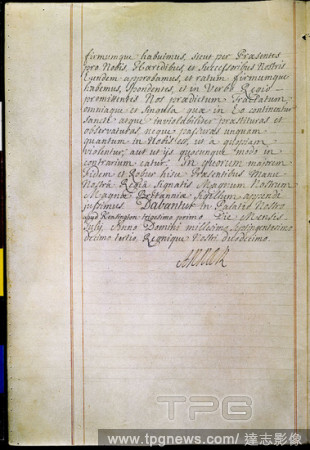 firmumque habuimus, sicut per Præsentes
pro Nobis, Hæredibus, et Successoribus Nostris
Eundem approbamus, et ratum firmumque
habemus, Spondentes, et in Verbo Regio
promittentes Nos prædictum Tractatum,
omniaque et Singula quæ in Eo continentur
sancte atque inviolabiliter præstituras et
observaturas, neque passuras unquam
quantum in Nobis est, ut a quopiam
violentur, aut ut iis quocunque modo in
contrarium eatur. In quorum majorem
fidem et Robur hisce Præsentibus Manu
Nostra Regia Signatis Magnum Nostrum
Magnæ Britanniæ Sigillum appendi
jussimus. Dabantur in Palatio Nostro
apud Kensington trigesimo primo Die Mensis
July Anno Domini millesimo Septingentesimo
decimo tertio Regnique Nostri duodecimo.
ANNE R
TPG
www.tpgnews.com/達志影像